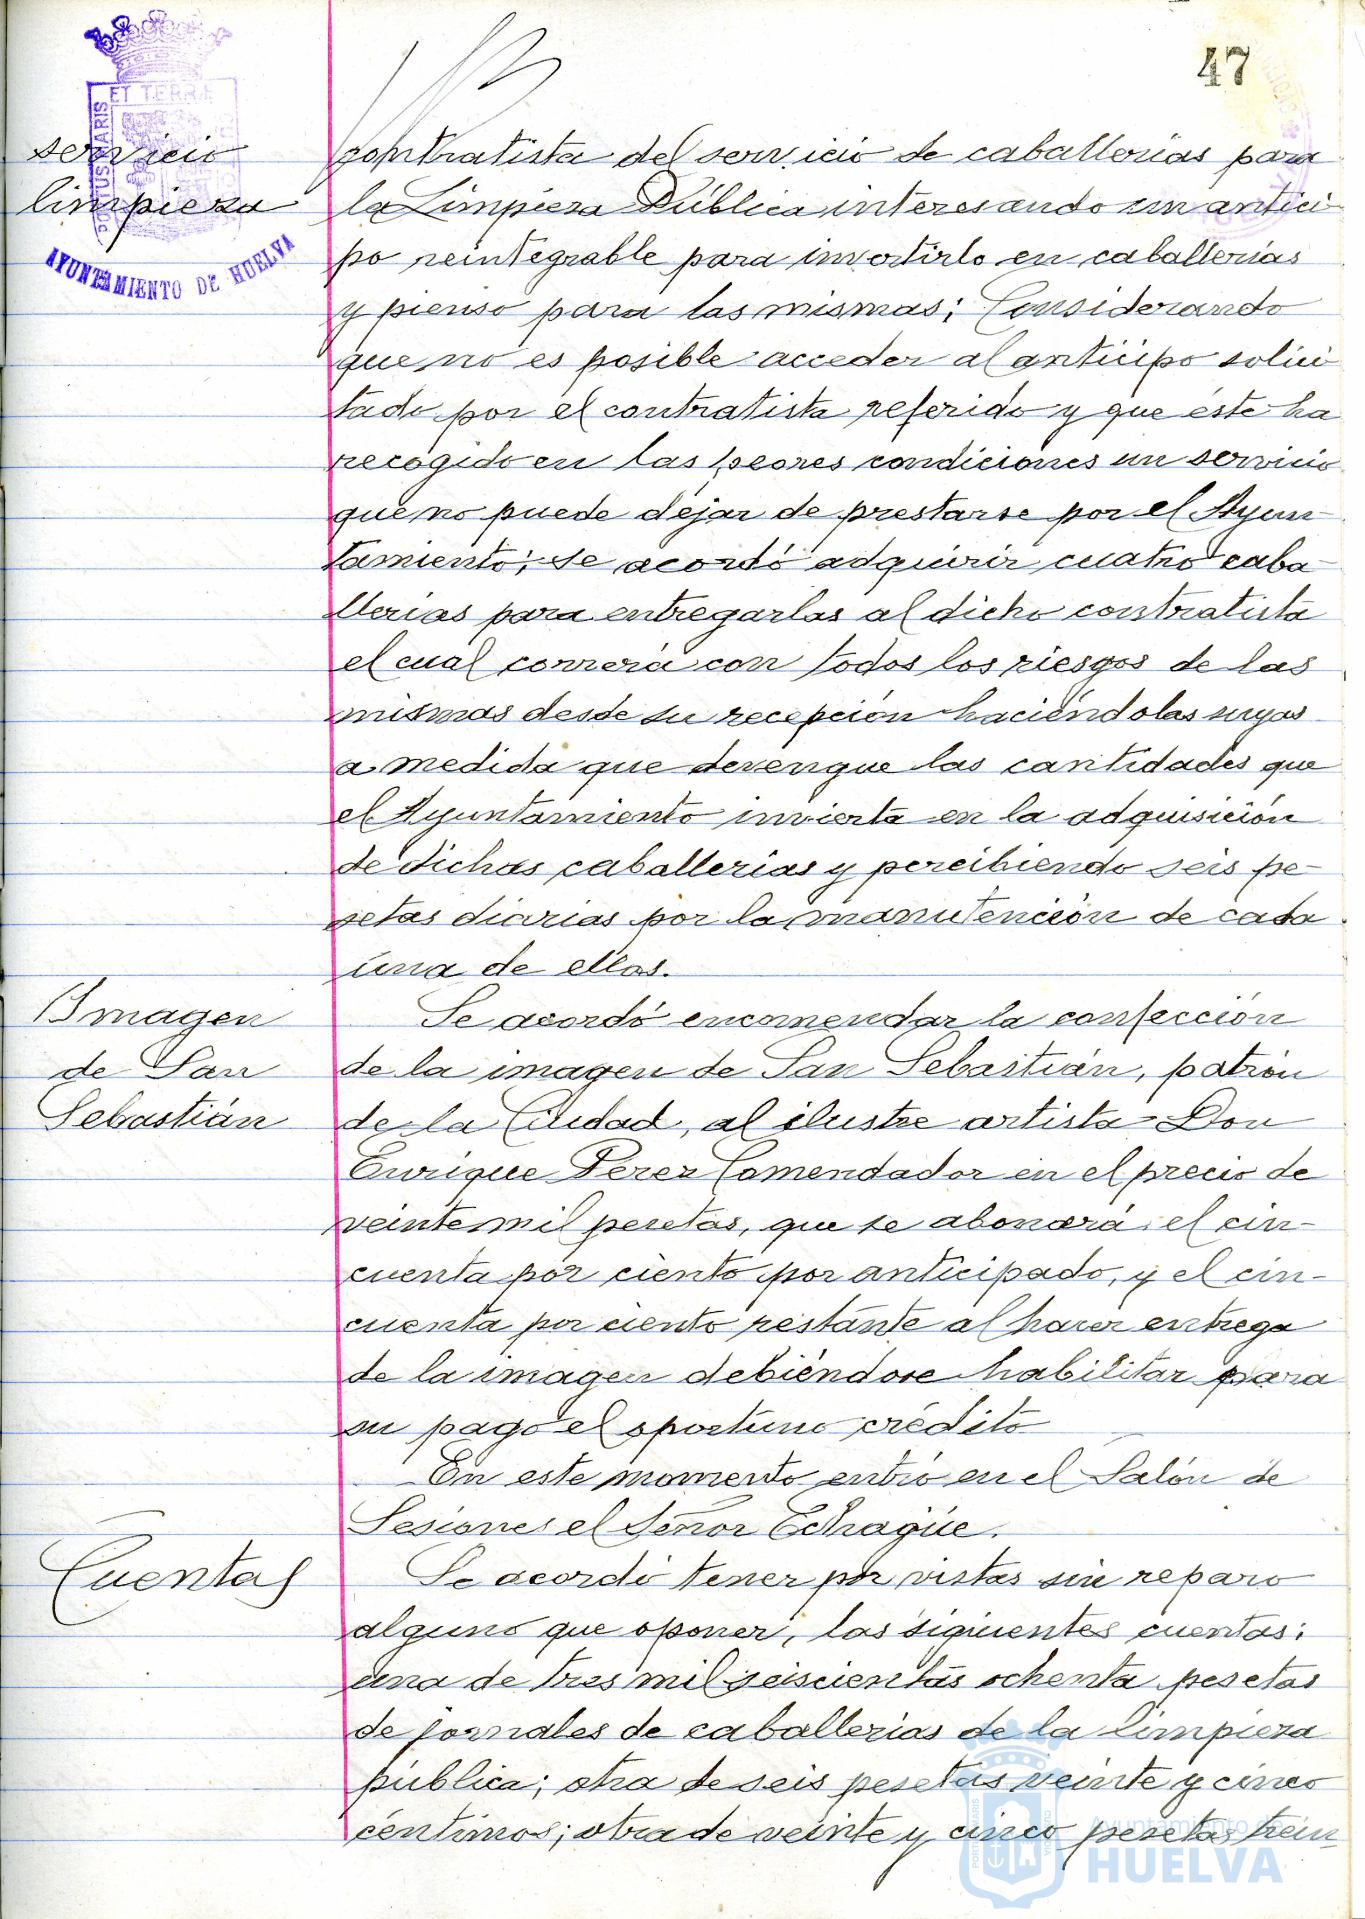 47
ET TERRÆ
PORTUS MARIS
AYUNTAMIENTO DE HUELVA
servicio
limpieza
contratista del servicio de caballerías para
la Limpieza Pública interesando un antici-
po reintegrable para invertirlo en caballerías
y pienso para las mismas; Considerando
que no es posible acceder al anticipo solici-
tado por el contratista referido y que éste ha
recogido en las peores condiciones un servicio
que no puede dejar de prestarse por el Ayun-
tamiento; se acordó adquirir cuatro caba-
llerías para entregarlas al dicho contratista
el cual correrá con todos los riesgos de las
mismas desde su recepción haciéndolas suyas
a medida que devengue las cantidades que
el Ayuntamiento invierta en la adquisición
de dichas caballerías y percibiendo seis pe-
setas diarias por la manutención de cada
una de ellas.
Imagen
de San
Sebastián
Se acordó encomendar la confección
de la imagen de San Sebastián, patrón
de la Ciudad, al ilustre artista Don
Enrique Pérez Comendador en el precio de
veinte mil pesetas, que se abonará el cin-
cuenta por ciento por anticipado, y el cin-
cuenta por ciento restante al hacer entrega
de la imagen debiéndose habilitar para
su pago el oportuno crédito
En este momento entró en el Salón de
Sesiones el Señor Echagüe.
Cuentas
Se acordó tener por vistas sin reparo
alguno que oponer, las siguientes cuentas:
una de tres mil seiscientas ochenta pesetas
de jornales de caballerías de la limpieza
pública; otra de seis pesetas veinte y cinco
céntimos; otra de veinte y cinco pesetas trein-
Ayuntamiento de
HUELVA